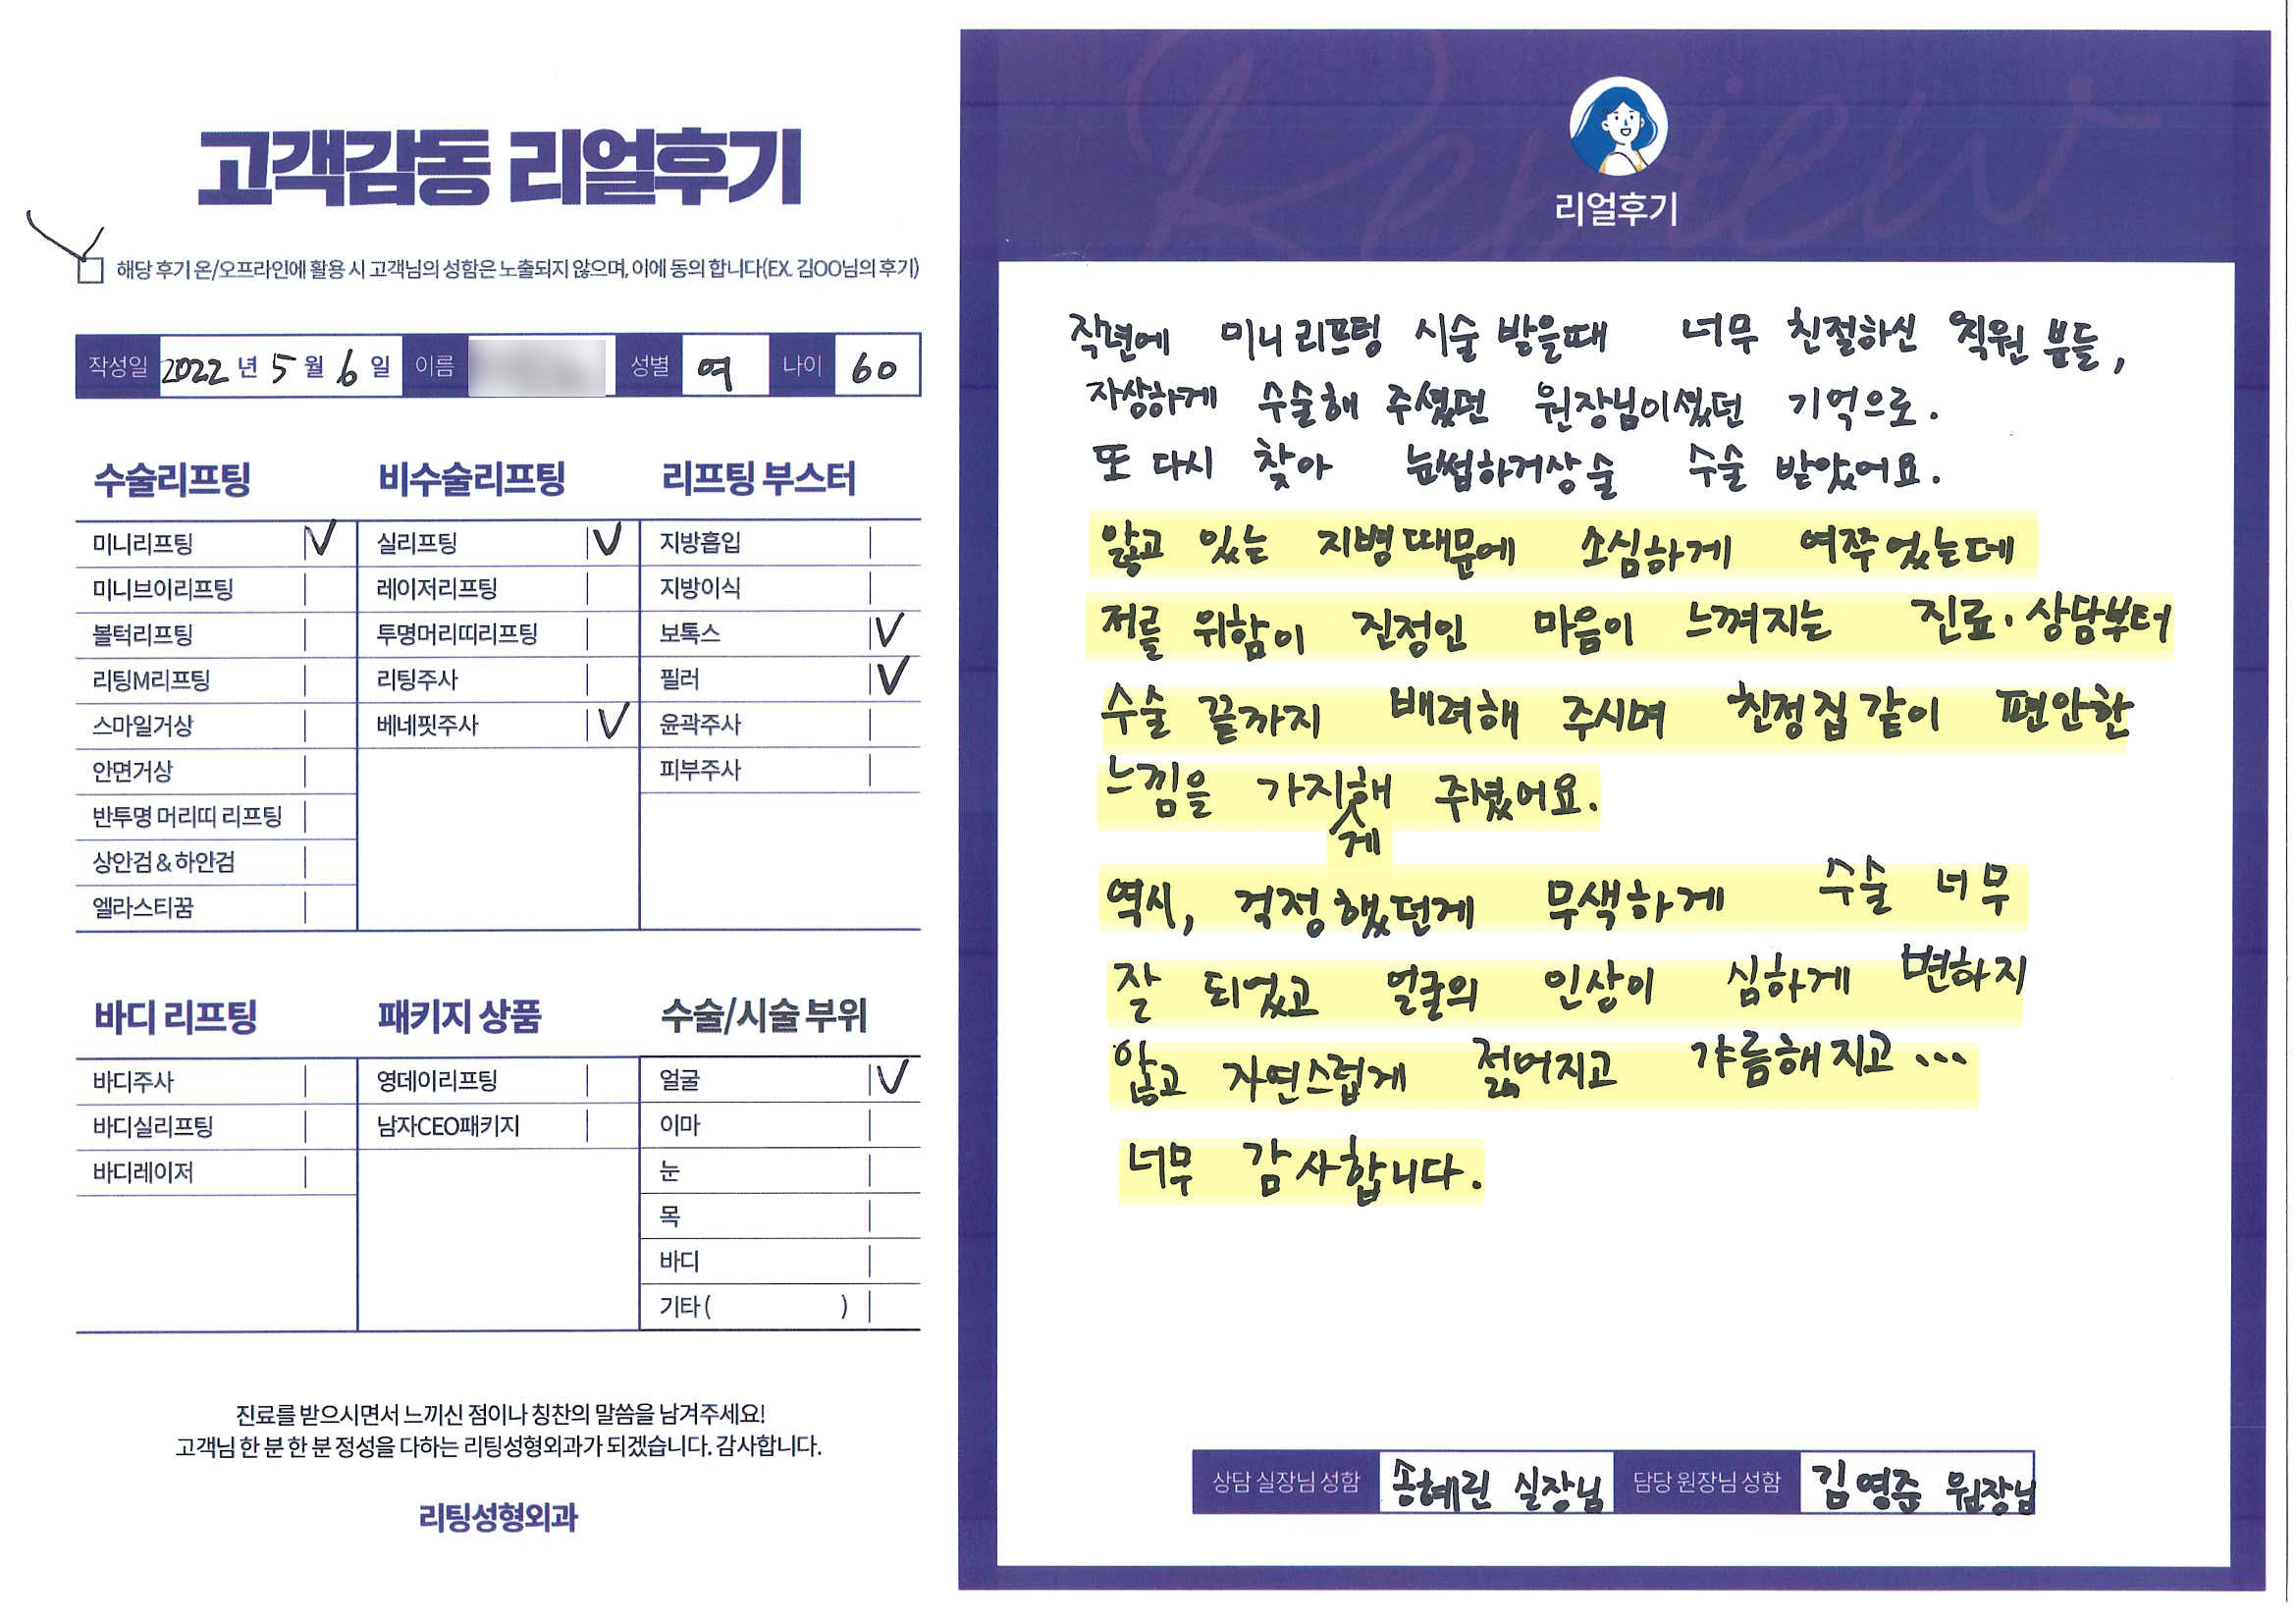 고객감동 리얼후기
해당 후기 온/오프라인에 활용 시 고객님의 성함은 노출되지 않으며, 이에 동의 합니다(EX. 김OO님의 후기)
작성일 2022 년 5 월 6 일 이름 성별 여 나이 60
수술리프팅
미니리프팅
미니브이리프팅
볼턱리프팅
리팅M리프팅
스마일거상
안면거상
반투명 머리띠 리프팅
상안검 & 하안검
엘라스티꿈
비수술리프팅
실리프팅
레이저리프팅
투명머리띠리프팅
리팅주사
베네핏주사
리프팅 부스터
지방흡입
지방이식
보톡스
필러
윤곽주사
피부주사
바디 리프팅
바디주사
바디실리프팅
바디레이저
패키지 상품
영데이리프팅
남자CEO패키지
수술/시술 부위
얼굴
이마
눈
목
바디
기타 ( )
진료를 받으시면서 느끼신 점이나 칭찬의 말씀을 남겨주세요!
고객님 한 분 한 분 정성을 다하는 리팅성형외과가 되겠습니다. 감사합니다.
리팅성형외과
Review
리얼후기
작년에 미니리프팅 시술 받을때 너무 친절하신 직원 분들,
자상하게 수술해 주셨던 원장님이셨던 기억으로.
또 다시 찾아 눈썹하거상술 수술 받았어요.
앓고 있는 지병때문에 소심하게 여쭈었는데
저를 위함이 진정인 마음이 느껴지는 진료·상담부터
수술 끝까지 배려해 주시며 친정집같이 편안한
느낌을 가지게해 주셨어요.
역시, 걱정했던게 무색하게 수술 너무
잘 되었고 얼굴의 인상이 심하게 변하지
않고 자연스럽게 젊어지고 갸름해지고...
너무 감사합니다.
상담 실장님 성함 송혜린 실장님 담당 원장님 성함 김영준 원장님